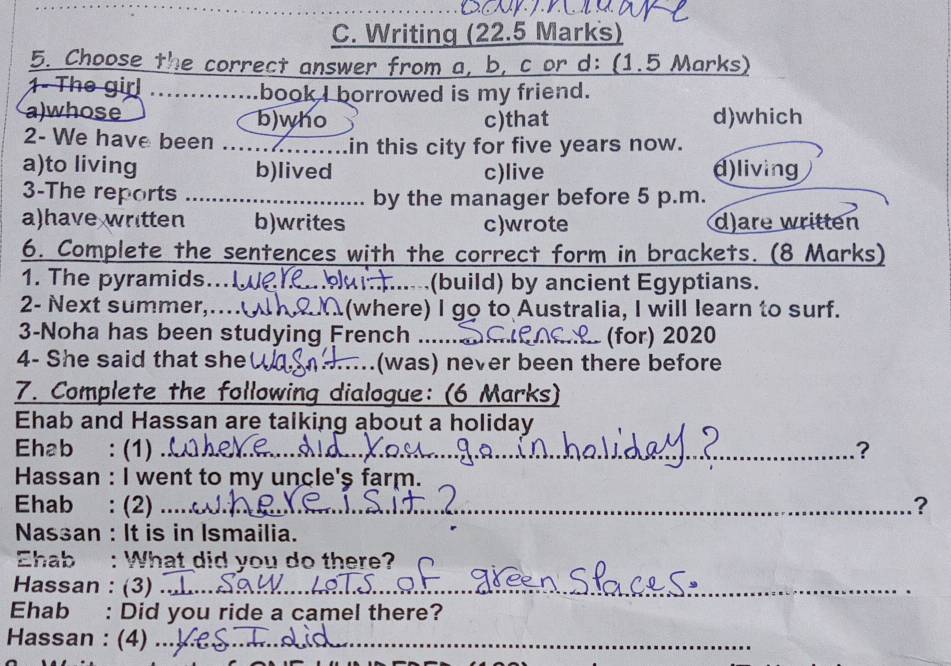 C. Writing (22.5 Marks)
5. Choose the correct answer from a, b, c or d: (1.5 Marks)
1- The girl ..............book I borrowed is my friend.
a)whose b)who c)that d)which
2- We have been ................in this city for five years now.
a)to living b)lived c)live d)living
3-The reports ........................ by the manager before 5 p.m.
a)have written b)writes c)wrote d)are written
6. Complete the sentences with the correct form in brackets. (8 Marks)
1. The pyramids...were bluit......(build) by ancient Egyptians.
2- Next summer,....when(where) I go to Australia, I will learn to surf.
3-Noha has been studying French ......Science... (for) 2020
4- She said that she wasn't.....(was) never been there before
7. Complete the following dialogue: (6 Marks)
Ehab and Hassan are talking about a holiday
Ehab : (1) .where did you go in holiday?...................?
Hassan : I went to my uncle's farm.
Ehab : (2) ....where is it?..........................................................?
Nassan : It is in Ismailia.
Ehab : What did you do there?
Hassan : (3) ..I saw LOTS of green Spaces............................ .
Ehab : Did you ride a camel there?
Hassan : (4) ...Yes I did..................................................................